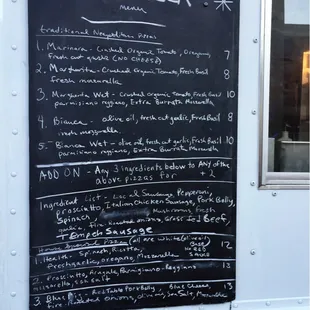 menu
traditional Neapolitan Pizzas
1. Marinara - Crushed Organic Tomato, Oregano 7
fresh cut garlic (NO CHEESE)
2. Margherita - Crushed Organic Tomato, Fresh Basil 8
fresh mozzarella.
3. Margherita Wet - Crushed Organic Tomato, Fresh Basil 10
parmigiano reggiano, Extra Burrata Mozzarella
4. Bianca - olive oil, fresh cut garlic, Fresh Basil 8
fresh mozzarella.
5. Bianca Wet - olive oil, fresh cut garlic, Fresh Basil 10
parmigiano reggiano, Extra Burrata Mozzarella
ADD ON - Any 3 ingredients below to ANY of the
above pizzas for +2
Ingredient list - Sausage, Pepperoni,
prosciutto, Italian Chicken Sausage, Pork Belly,
Spinach, Mushrooms, Fresh
garlic, fire roasted onions, Grass Fed Beef,
Tempeh Sausage
(all are white/olive oil
NO RED SAUCE)
1. Health - Spinach, Ricotta, 12
Fresh garlic, oregano, Mozzarella
2. Prosciutto, Arugula, Parmigiano-Reggiano 13
Mozzarella, Sea Salt
3. Blue Pork Belly, Blue Cheese, 13
fire roasted onions, olive oil, Sea Salt, Mozzarella